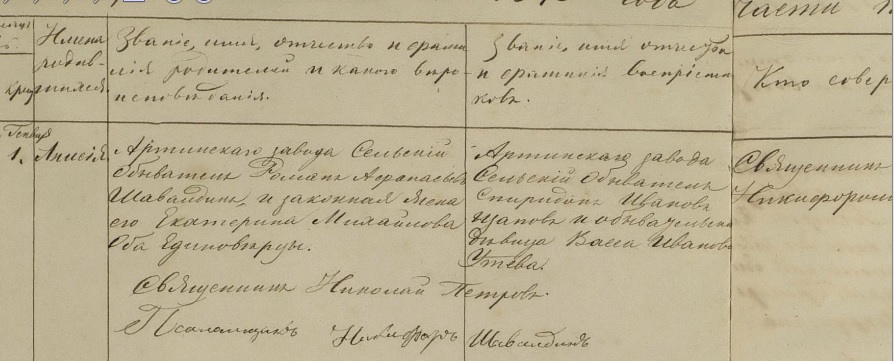 года
части I.
Имена родив-
шихся.
Званіе, имя, отчество и фами-
лія родителей и какого вѣро-
исповѣданія.
Званіе, имя отчество
и фамилія воспріемни-
ковъ.
Кто совер
Генваря
1.
Анисія
Артинскаго завода Сельскій
обыватель Романъ Афанасьевъ
Шавалдинъ, и законная жена
его Екатерина Михайлова
Оба Единовѣрцы.
Артинскаго завода
Сельскій Обыватель
Спиридонъ Ивановъ
и обывательска
дѣвица Васса Иванова
Утева.
Священникъ
Священникъ Николай Петровъ.
Псаломщикъ Никифоръ Шавалдинъ